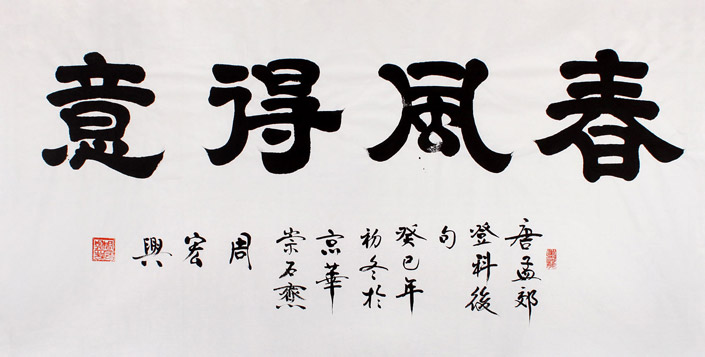 春風得意
唐孟郊
登科後
句
癸巳年
初冬於
京華
崇石齋
周
宏
興